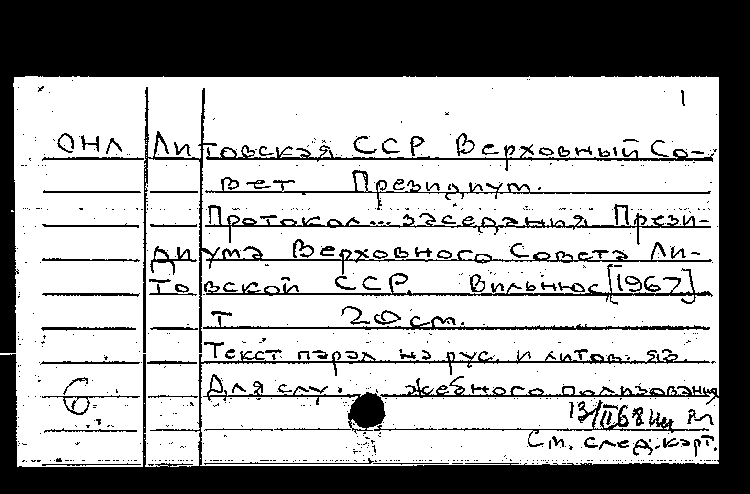 1
ОНЛ Литовская ССР Верховный Со-
вет. Президиум.
Протокол... заседания Прези-
диума Верховного Совета Ли-
товской ССР. Вильнюс, [1967]
т 20 см.
Текст парал на рус. и литов. яз.
Для слу. жебного ползования
6
13/II 68
См. след. карт.